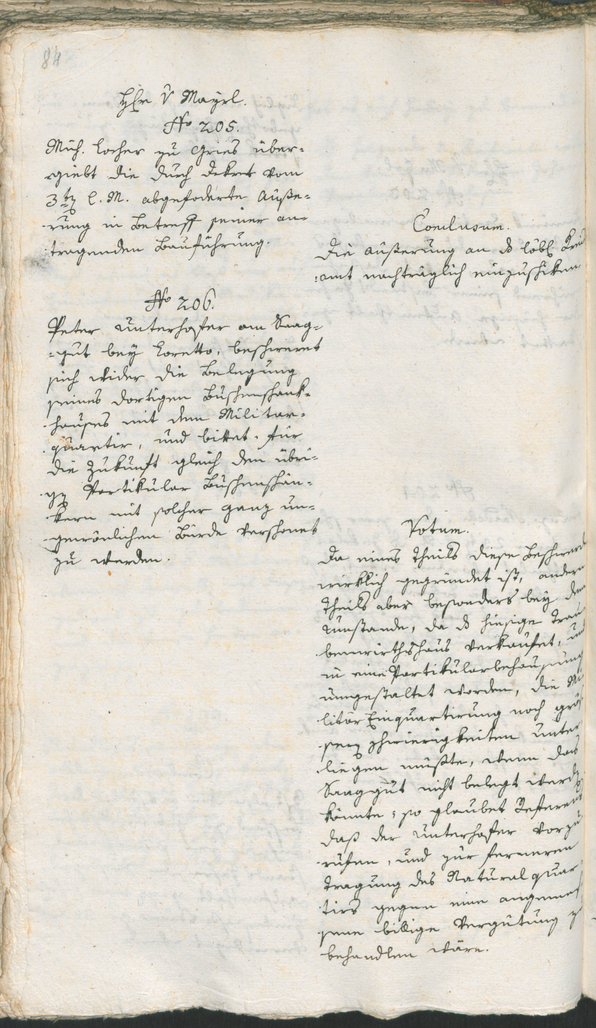 84
Hhr v Mayrl.
No 205.
Mich. Locher zu Gries über-
giebt die durch Dekret vom
3ten l. M. abgefoderte Äuße-
rung in Betreff seiner an-
tragenden Bauführung.
Conclusum.
Die Äußerung an d löbl.
amt nachträglich einzuschiken
No 206.
Peter Unterhofer am Saag-
gut bey Loretto, beschweret
sich wider die Belegung
seines dortigen Buschenschank-
hauses mit dem Militar-
quartir, und bittet, für
die Zukunft gleich den übri-
gen Partikular Buschenschän-
kern mit solcher ganz un-
gewönlichen Bürde verschonet
zu werden.
Votum.
Da eines Theils diese Beschwerd
wirklich gegründet ist, andern
Theils aber besonders bey dem
Umstande, da d hiesige Trau
benwirthshaus verkaufet, und
in eine Partikularbehausung
umgestaltet worden, die Mi
litar Einquartirung noch grös
sern Schwierigkeiten unter
liegen müßte, wenn das
Saaggut nicht belegt werden
könnte; so glaubet Referent
daß der Unterhofer vorzu
rufen, und zur ferneren
Tragung des Naturalquar
tirs gegen eine angemes
sene billige Vergütung zu
behandlen wäre.